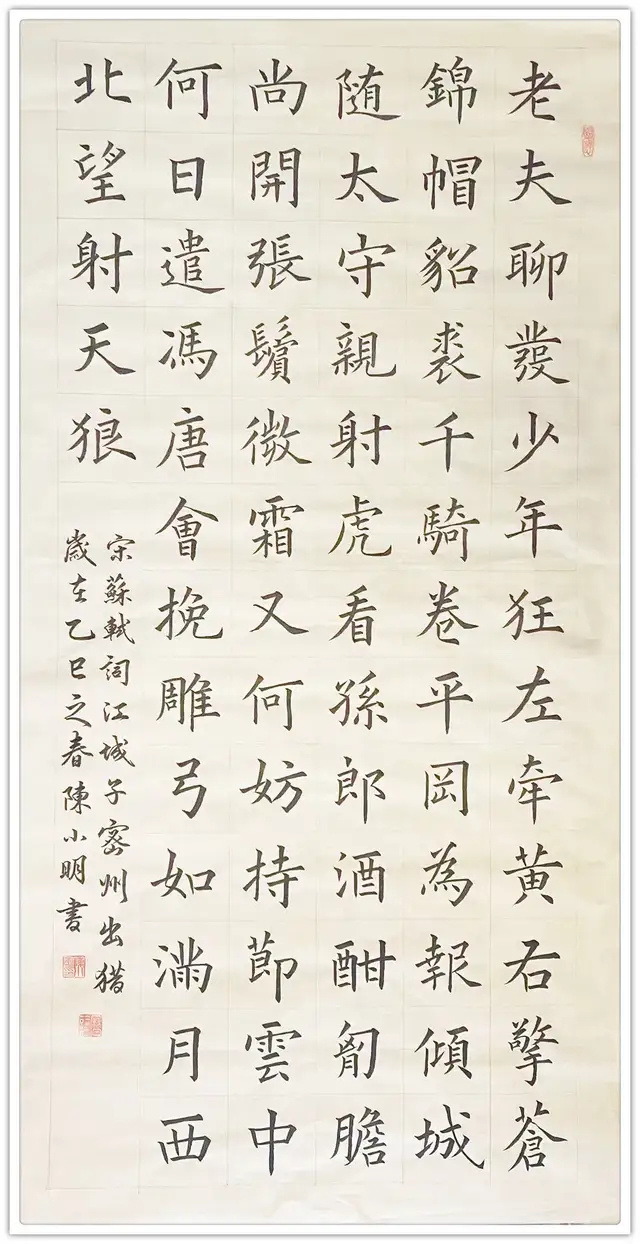 老夫聊發少年狂左牽黃右擎蒼
錦帽貂裘千騎卷平岡為報傾城
随太守親射虎看孫郎酒酣胷膽
尚開張鬢微霜又何妨持節雲中
何日遣馮唐會挽雕弓如滿月西
北望射天狼
宋蘇軾詞江城子密州出猎
歲在乙巳之春陳小明書